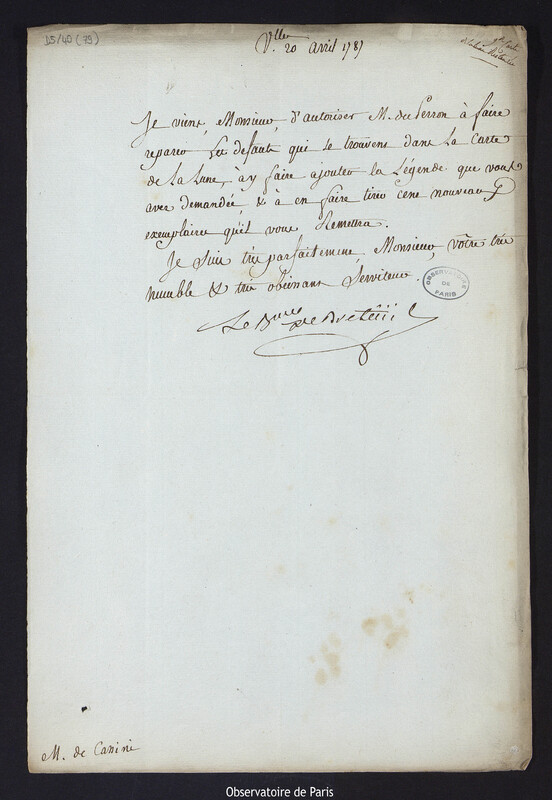 D5/40 (79)
V.lles 20 avril 1787
Je viens, Monsieur, d'autoriser M. du Perron à faire
reparer les defauts qui se trouvent dans la Carte
de la lune, à y faire ajouter la Légende que vous
avez demandée, & à en faire tirer cent nouveaux
exemplaires qu'il vous remettra.
Je suis très parfaitement, Monsieur, vôtre très
humble & très obéissant Serviteur.
OBSERVATOIRE
DE
PARIS
Le Bon de Breteüil
M. de Cassini
Observatoire de Paris